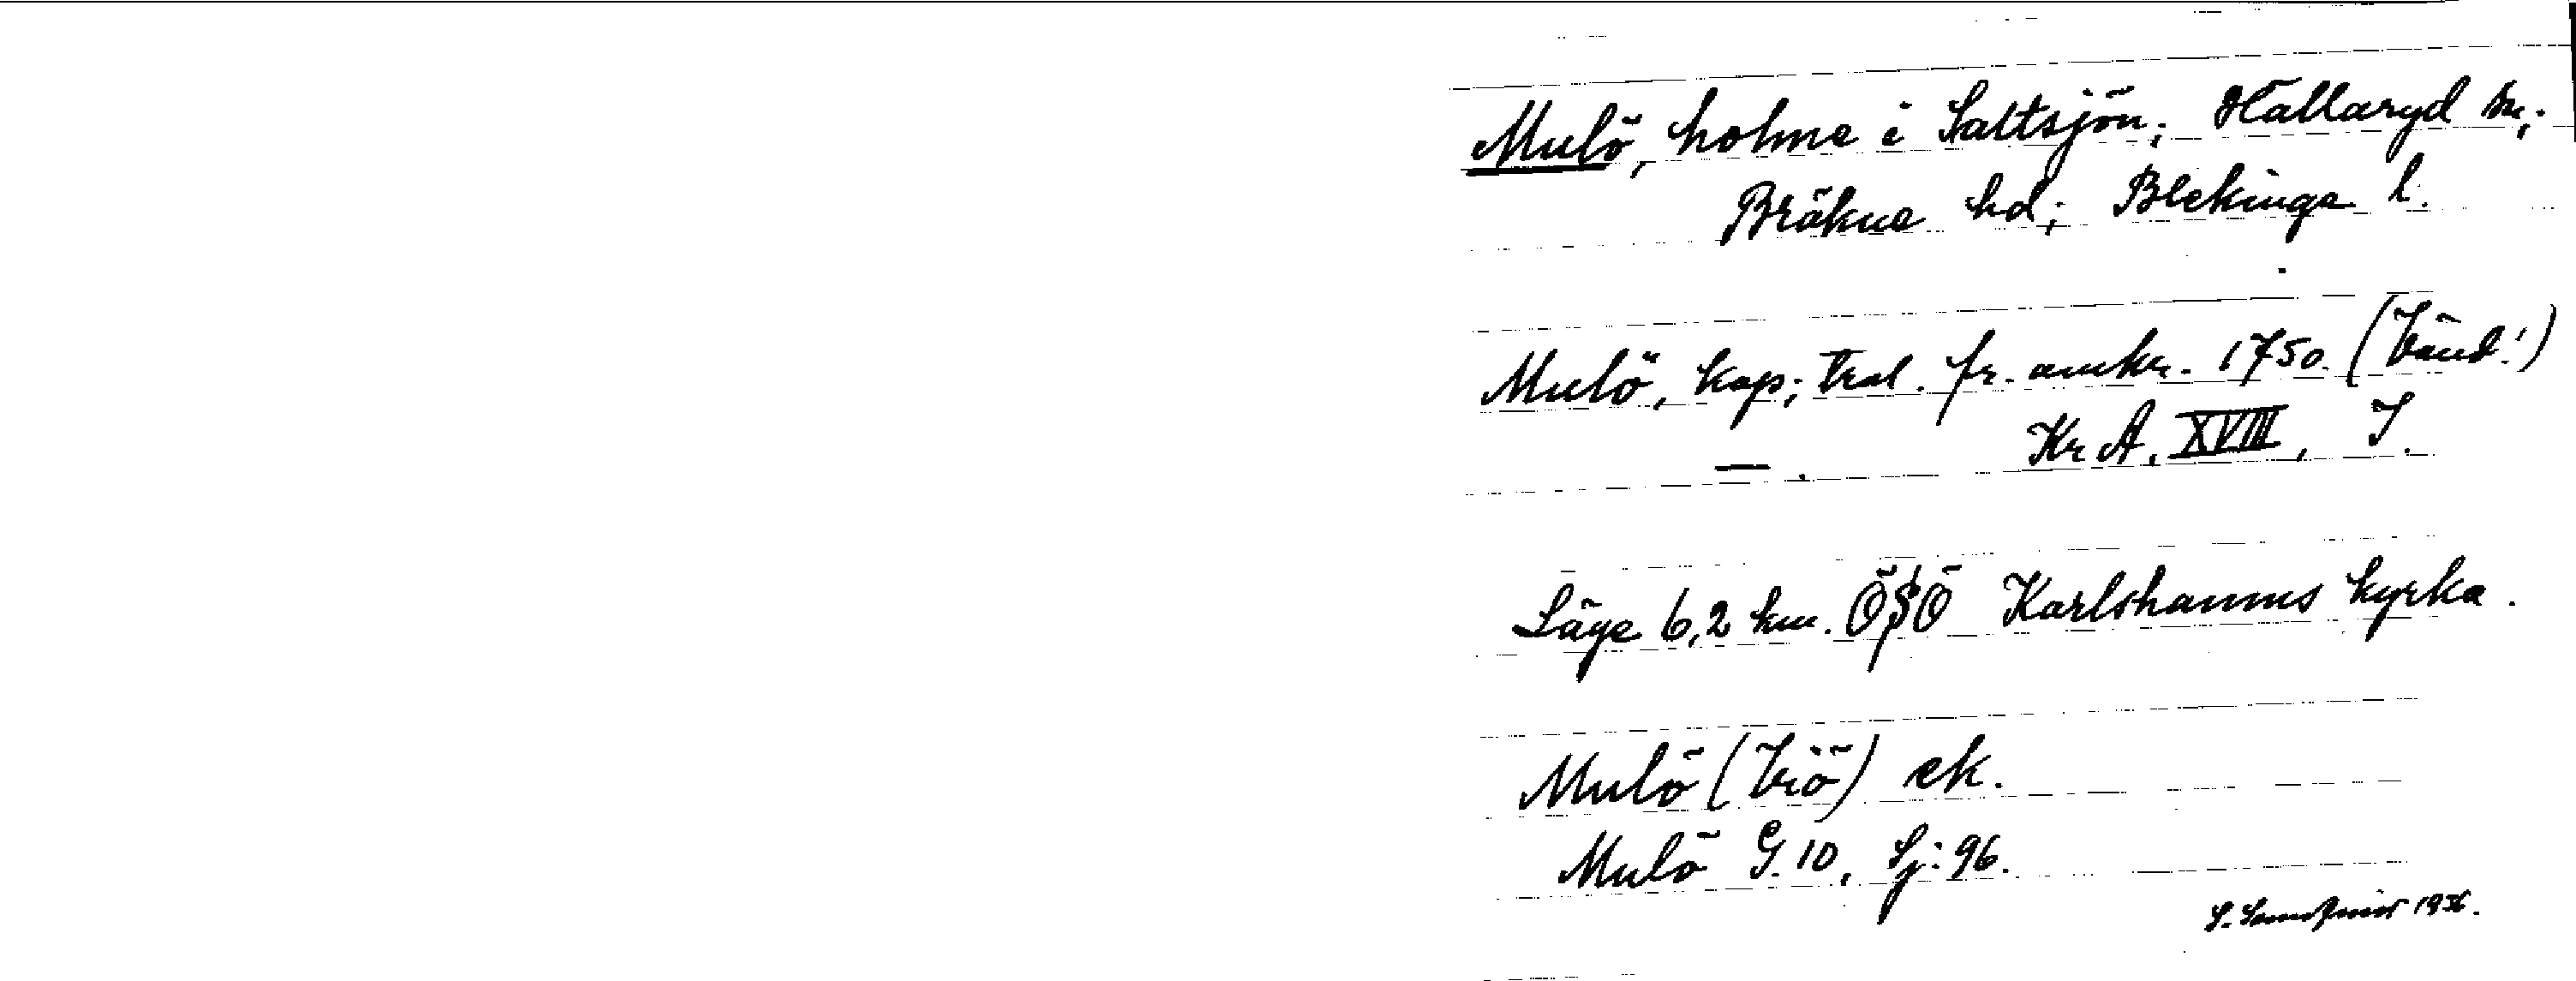 Mulö, holme i Saltsjön; Hällaryd sn;
Bräkne hd; Blekinge l.
Mulö, kop; tral. fr. omkr. 1750. (Vänd!)
Kr A. XVIII, I.
Läge 6,2 km. ÖSÖ Karlshamns kyrka.
Mulö (Vö) ek.
Mulö G. 10, Sj: 96.
1936.